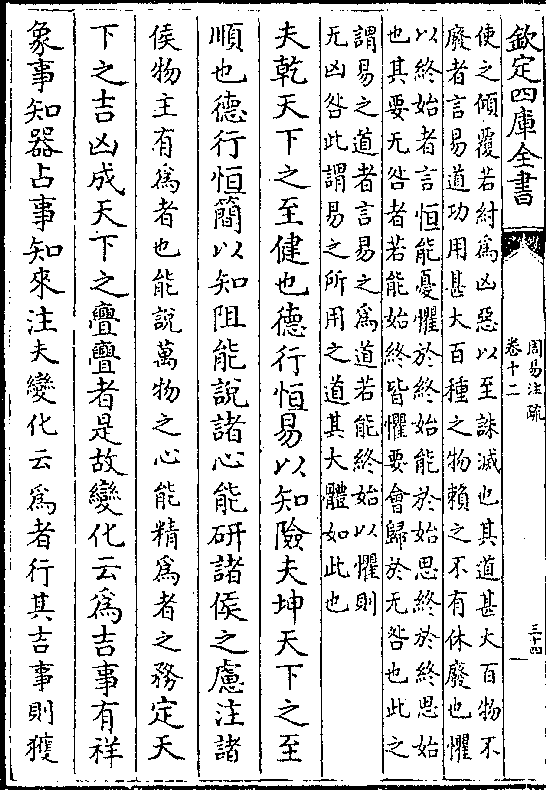 欽定四庫全書
周易注疏
卷十二
三十四
使之傾覆若紂為凶惡以至誅滅也其道甚大百物不
廢者言易道功用甚大百種之物賴之不有休廢也懼
以終始者言恒能憂懼於終始能於始思終於終思始
也其要无咎者若能始終皆懼要會歸於无咎也此之
謂易之道者言易之為道若能終始以懼則
无凶咎此謂易之所用之道其大體如此也
夫乾天下之至健也德行恒易以知險夫坤天下之至
順也德行恒簡以知阻能說諸心能研諸侯之慮注諸
侯物主有為者也能說萬物之心能精為者之務定天
下之吉凶成天下之亹亹者是故變化云為吉事有祥
象事知器占事知來注夫變化云為者行其吉事則獲